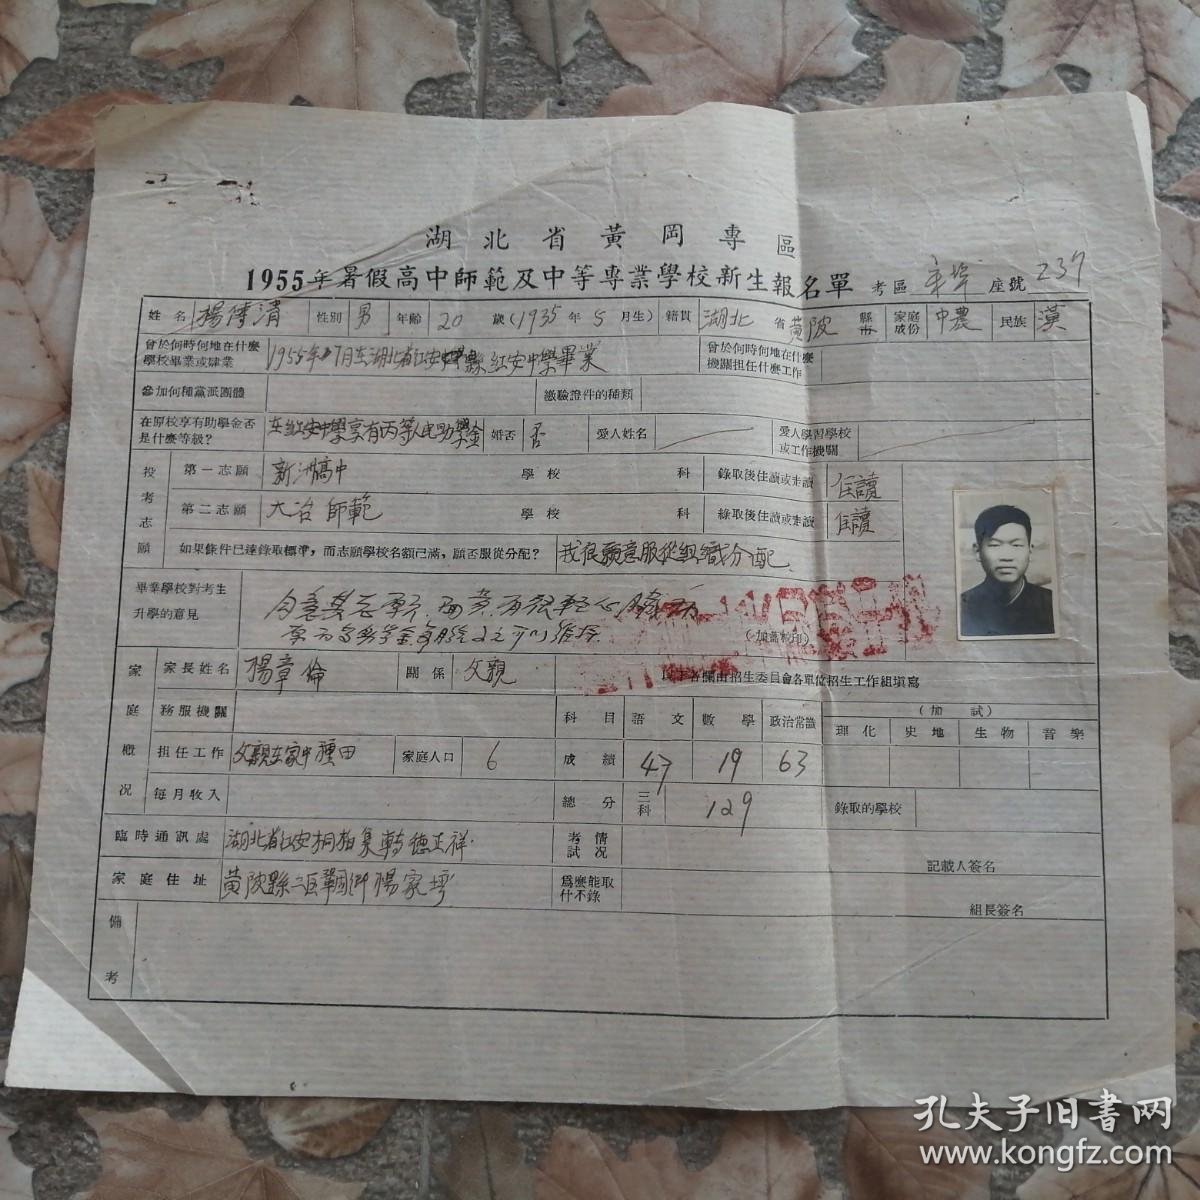 湖北省黃岡專區
1955年暑假高中師範及中等專業學校新生報名單 考區 座號 237
姓名 楊傳清 性別 男 年齡 20 歲(1935年5月生) 籍貫 湖北省黃陂縣市 家庭成份 中農 民族 漢
曾於何時何地在什麼學校畢業或肄業 1955年7月在湖北省红安縣红安中學畢業 曾於何時何地在什麼機關担任什麼工作
參加何種黨派團體 繳驗證件的種類
在原校享有助學金否是什麼等級? 在红安中學享有丙等人民助學金 婚否 否 愛人姓名 愛人學習學校或工作機關
投考志願 第一志願 新洲高中 學校 科 錄取後住讀或走讀 住讀
第二志願 大冶師範 學校 科 錄取後住讀或走讀 住讀
如果條件已達錄取標準,而志願學校名額已滿,願否服從分配? 我很願意服從組織分配
畢業學校對考生升學的意見
(加蓋校印)
家庭概况 家長姓名 楊章倫 關係 父親 以下各欄由招生委員會各單位招生工作組填寫
務服機關 科目 語文 數學 政治常識 (加試) 理化 史地 生物 音樂
担任工作 父親在家中種田 家庭人口 6 成績 47 19 63
每月收入 總分 三科 129 錄取的學校
臨時通訊處 湖北省红安桐柏集轉德正祥 考試情况
記載人簽名
家庭住址 黃陂縣二区 楊家 爲什麼不能錄取
組長簽名
備考
孔夫子旧書网
www.kongfz.com